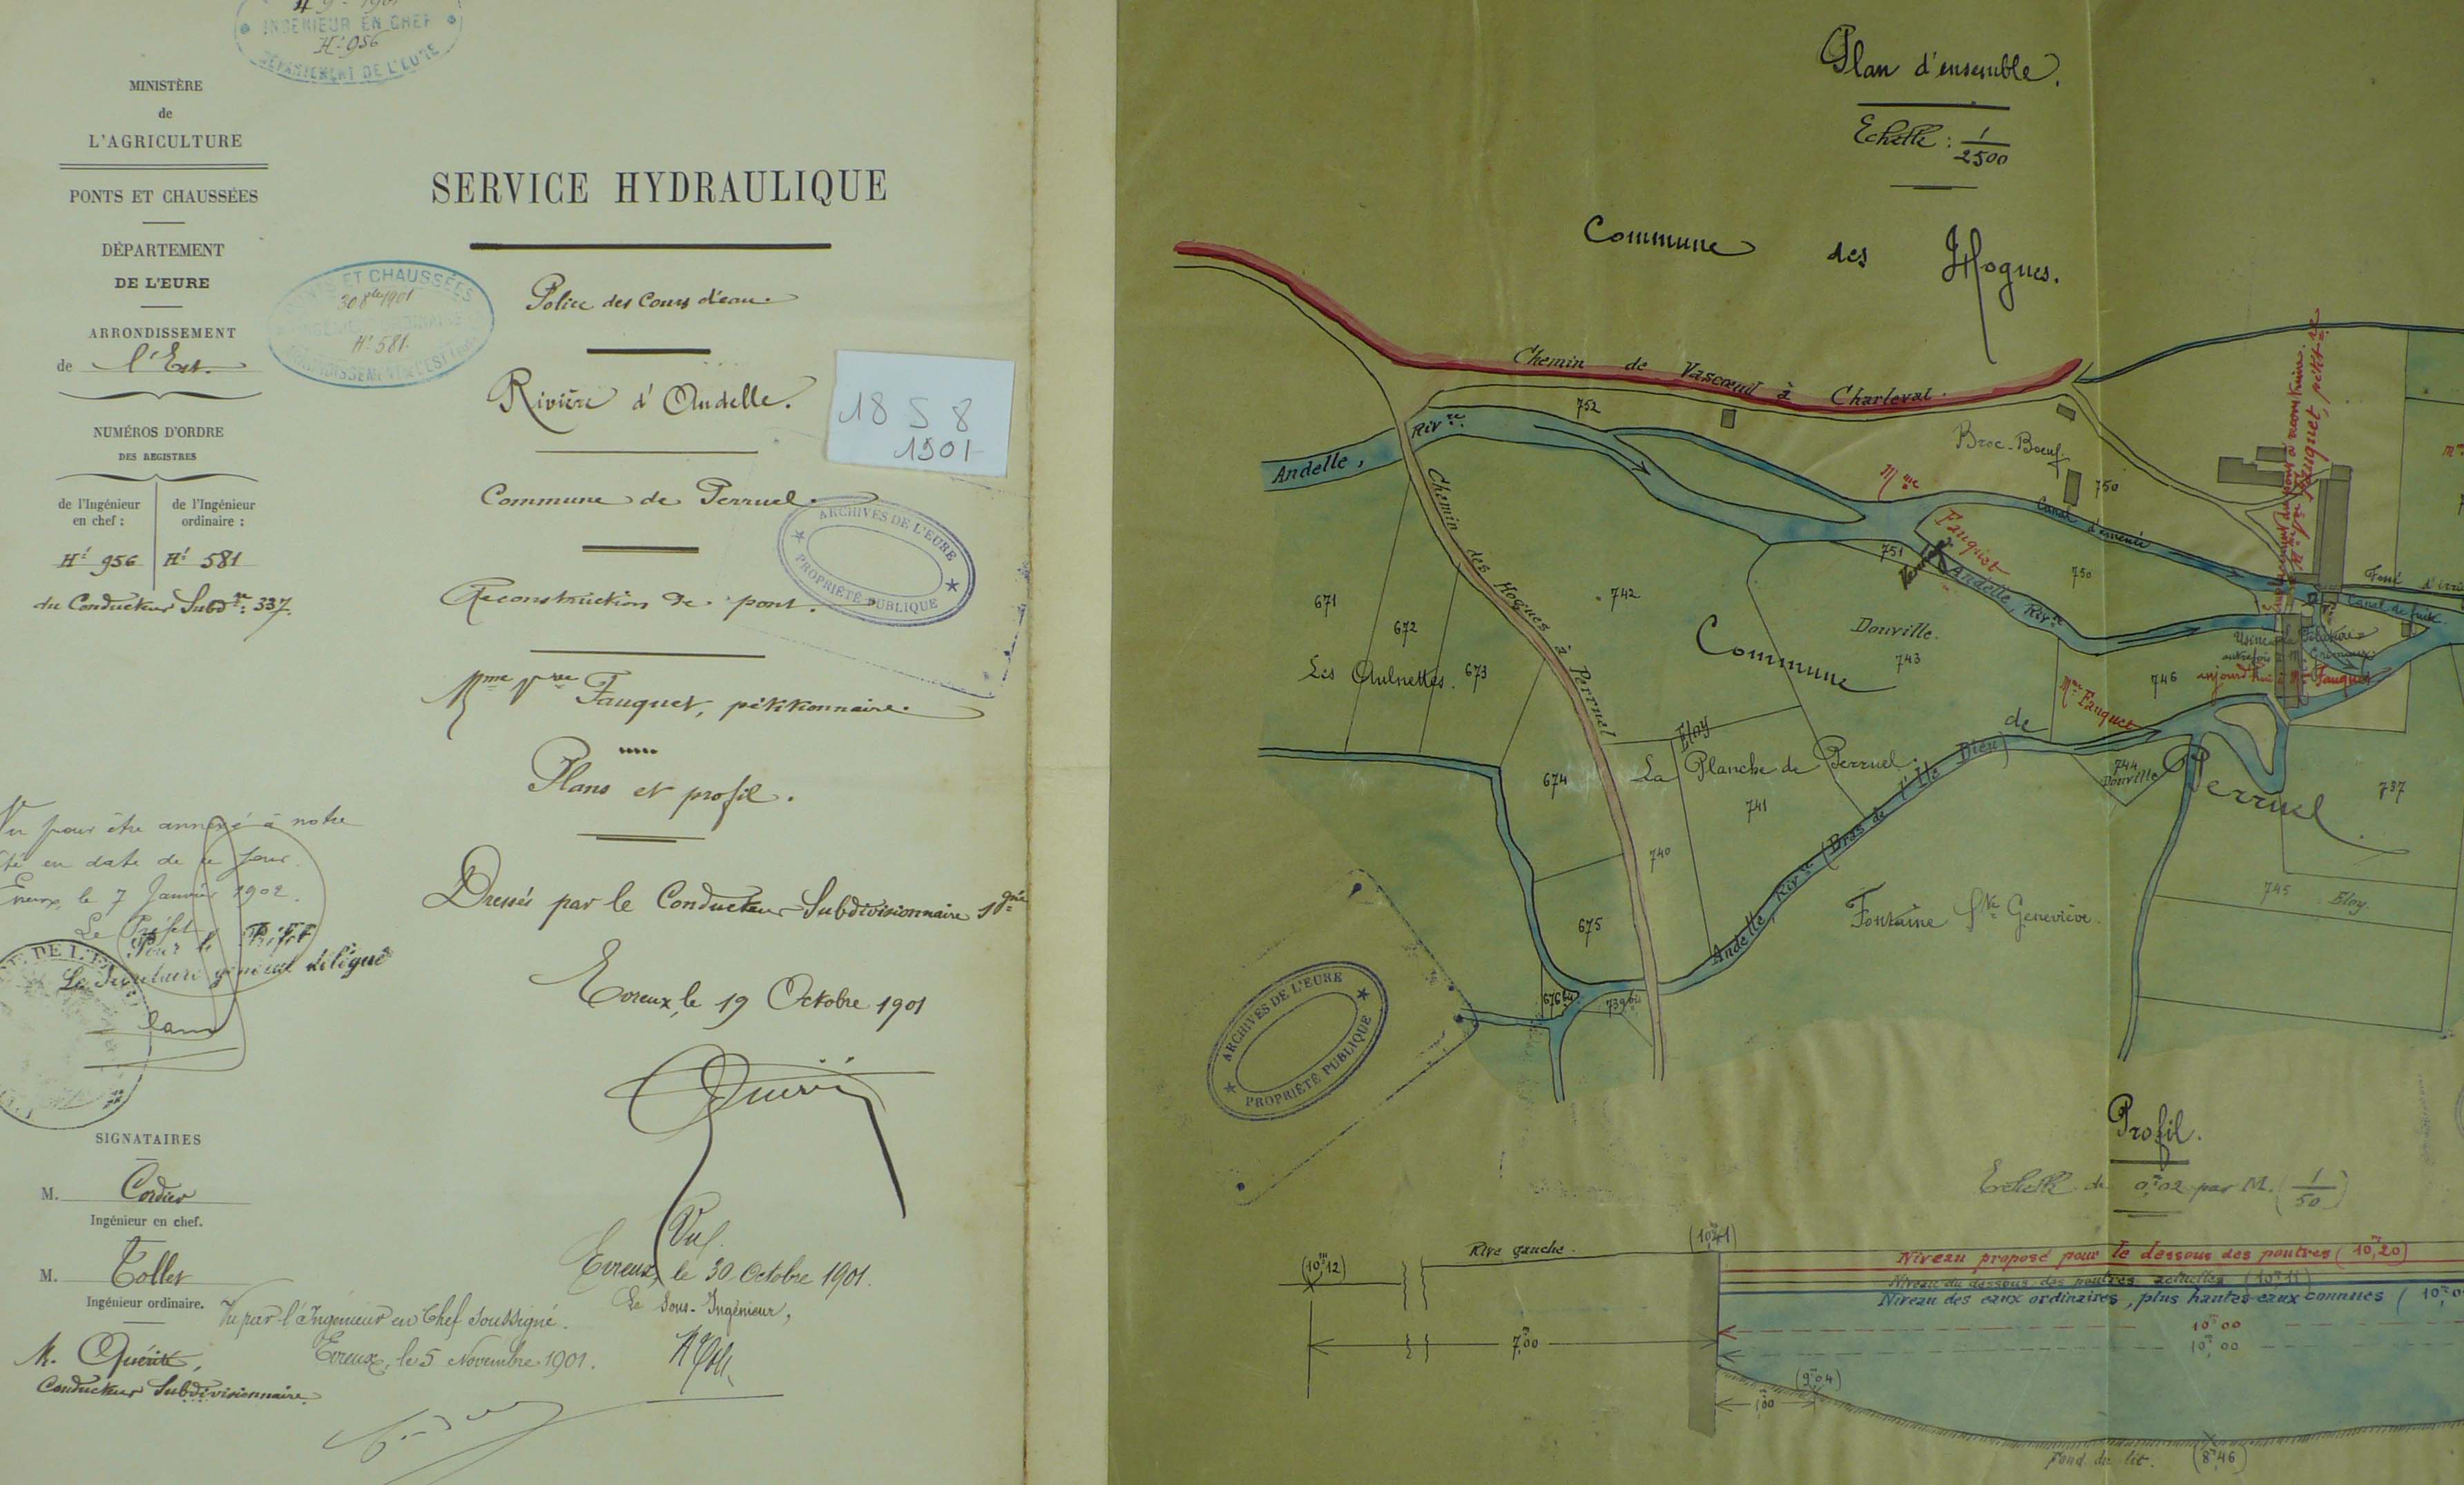 INGÉNIEUR EN CHEF
Nº 956
DÉPARTEMENT DE L'EURE
MINISTÈRE
de
L'AGRICULTURE
PONTS ET CHAUSSÉES
DÉPARTEMENT
DE L'EURE
ARRONDISSEMENT
de l'Est.
NUMÉROS D'ORDRE
DES REGISTRES
de l'Ingénieur
en chef :
de l'Ingénieur
ordinaire :
Nº 956
Nº 581
du Conducteur Subdre: 337.
PONTS ET CHAUSSÉES
30 8bre 1901
Nº 581.
SERVICE HYDRAULIQUE
Police des Cours d'eau.
Rivière d'Andelle.
18 S 8
1901
Commune de Perruel.
ARCHIVES DE L'EURE
PROPRIÉTÉ PUBLIQUE
Reconstruction de pont.
Mme Vve Fauquet, pétitionnaire.
Plans et profil.
Dressés par le Conducteur Subdivisionnaire sgné
Evreux, le 19 Octobre 1901
Vu pour être annexé à notre
en date de ce jour.
Evreux, le 7 Janvier 1902.
Le Préfet
Pour le Préfet
Le Secrétaire général délégué
SIGNATAIRES
M. Cordier
Ingénieur en chef.
M. Tollet
Ingénieur ordinaire.
M. Quérité,
Conducteur Subdivisionnaire.
Vu.
Evreux, le 30 Octobre 1901.
Le Sous-Ingénieur,
Vu par l'Ingénieur en Chef soussigné.
Evreux, le 5 Novembre 1901.
Plan d'ensemble.
Echelle : 1/2500
Commune des Hogues.
Chemin de Vascoeuil à Charleval.
Andelle, Rivre.
752
Broc-Boeuf.
750
Mme Fauquet
Canal d'amenée
751
Andelle, Rivre
750
Chemin des Hogues à Perruel
671
672
673
Les Aulnettes.
742
Commune de Perruel.
Douville.
743
Mme Fauquet
746
Usine
autrefois à M.
aujourd'hui à Mme Fauquet
Canal de fuite.
Vve Fauquet, pétitre
Eloy
La Planche de Perruel.
741
674
740
675
676 bis
739 bis
Andelle, Rivre (Bras de l'Ile Dieu)
744
Douville
Fontaine Ste Geneviève.
787
745 Eloy.
ARCHIVES DE L'EURE
PROPRIÉTÉ PUBLIQUE
Profil.
Echelle de 0m,02 par M. (1/50)
(10m12)
Rive gauche.
(10m41)
Niveau proposé pour le dessous des poutres (10m,20)
Niveau du dessous des poutres actuelles (10m11)
Niveau des eaux ordinaires, plus hautes eaux connues (
10m00
10m,00
7m,00
(9m04)
1m,00
Fond du lit.
(8m,46)